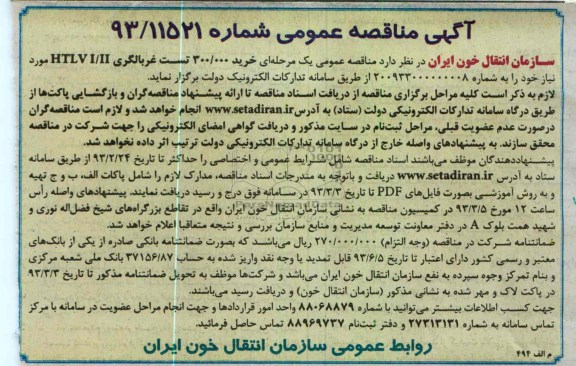 آگهی مناقصه عمومی شماره ۹۳/۱۱۵۲۱
سازمان انتقال خون ایران در نظر دارد مناقصه عمومی یک مرحله‌ای خرید ۳۰۰/۰۰۰ تست غربالگری HTLV I/II مورد
نیاز خود را به شماره ۲۰۰۹۳۳۰۰۰۰۰۰۰۰۸ از طریق سامانه تدارکات الکترونیک دولت برگزار نماید.
لازم به ذکر است کلیه مراحل برگزاری مناقصه از دریافت اسناد مناقصه تا ارائه پیشنهاد مناقصه‌گران و بازگشایی پاکت‌ها از
طریق درگاه سامانه تدارکات الکترونیکی دولت (ستاد) به آدرس www.setadiran.ir انجام خواهد شد و لازم است مناقصه‌گران
درصورت عدم عضویت قبلی، مراحل ثبت‌نام در سایت مذکور و دریافت گواهی امضای الکترونیکی را جهت شرکت در مناقصه
محقق سازند. به پیشنهادهای واصله خارج از درگاه سامانه تدارکات الکترونیکی دولت ترتیب اثر داده نخواهد شد.
پیشنهاددهندگان موظف می‌باشند اسناد مناقصه شامل شرایط عمومی و اختصاصی را حداکثر تا تاریخ ۹۳/۲/۲۴ از طریق سامانه
ستاد به آدرس www.setadiran.ir دریافت و باتوجه به مندرجات اسناد مناقصه، مدارک لازم را شامل پاکات الف، ب و ج تهیه
و به روش آموزشی بصورت فایل‌های PDF تا تاریخ ۹۳/۳/۳ در سامانه فوق درج و رسید دریافت نمایند. پیشنهادهای واصله رأس
ساعت ۱۲ مورخ ۹۳/۳/۵ در کمیسیون مناقصه به نشانی سازمان انتقال خون ایران واقع در تقاطع بزرگراه‌های شیخ فضل‌اله نوری و
شهید همت بلوک A در دفتر معاونت توسعه مدیریت و منابع سازمان بررسی و نتیجه متعاقبا اعلام خواهد شد.
ضمانتنامه شرکت در مناقصه (وجه التزام) ۲۷۰/۰۰۰/۰۰۰ ریال می‌باشد که بصورت ضمانتنامه بانکی صادره از یکی از بانک‌های
معتبر و رسمی کشور دارای اعتبار تا تاریخ ۹۳/۶/۵ قابل تمدید یا وجه نقد واریز شده به حساب ۳۷۱۵۶/۸۷ بانک ملی شعبه مرکزی
و بنام تمرکز وجوه سپرده به نفع سازمان انتقال خون ایران می‌باشد و شرکت‌ها موظف به تحویل ضمانتنامه مذکور تا تاریخ ۹۳/۳/۳
در پاکت لاک و مهر شده به نشانی مذکور (سازمان انتقال خون) و دریافت رسید می‌باشند.
جهت کسب اطلاعات بیشتر می‌توانید با شماره ۸۸۰۶۸۸۷۹ واحد امور قراردادها و جهت انجام مراحل عضویت در سامانه با مرکز
تماس سامانه به شماره ۲۷۳۱۳۱۳۱ و دفتر ثبت‌نام ۸۸۹۶۹۷۳۷ تماس حاصل فرمائید.
روابط عمومی سازمان انتقال خون ایران
م الف ۴۹۴